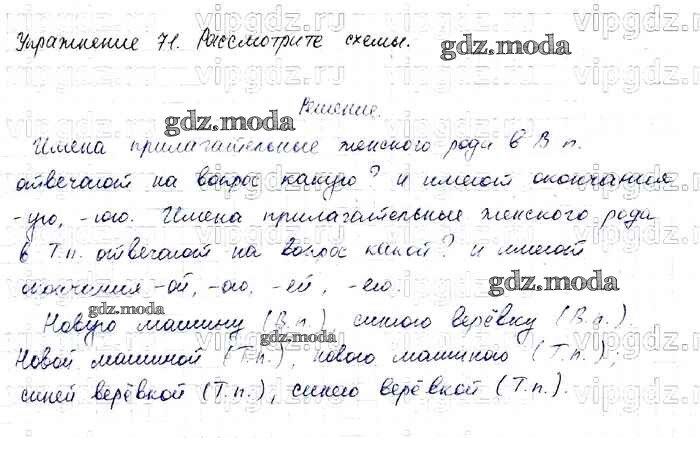 Упражнение 71. Рассмотрите схемы.
gdz.moda
Решение.
gdz.moda
Имена прилагательные женского рода в В п.
отвечают на вопрос какую? и имеют окончания
-ую, -юю. Имена прилагательные женского рода
в Т.п. отвечают на вопрос какой? и имеют
окончания -ой, -ою, -ей, -ею.
gdz.moda
Новую машину (В.п.), синюю верёвку (В.п.).
gdz.moda
Новой машиной (Т.п.), новою машиною (Т.п.),
синей верёвкой (Т.п.), синею верёвкой (Т.п.).
vipgdz.ru